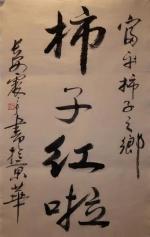 富平柿子之鄉
柿子红啦
長安
書於
華